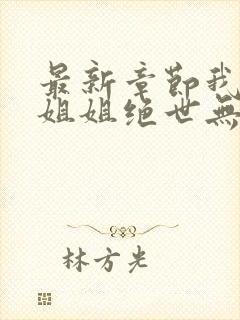 最新章節我
姐姐绝世無
林方光